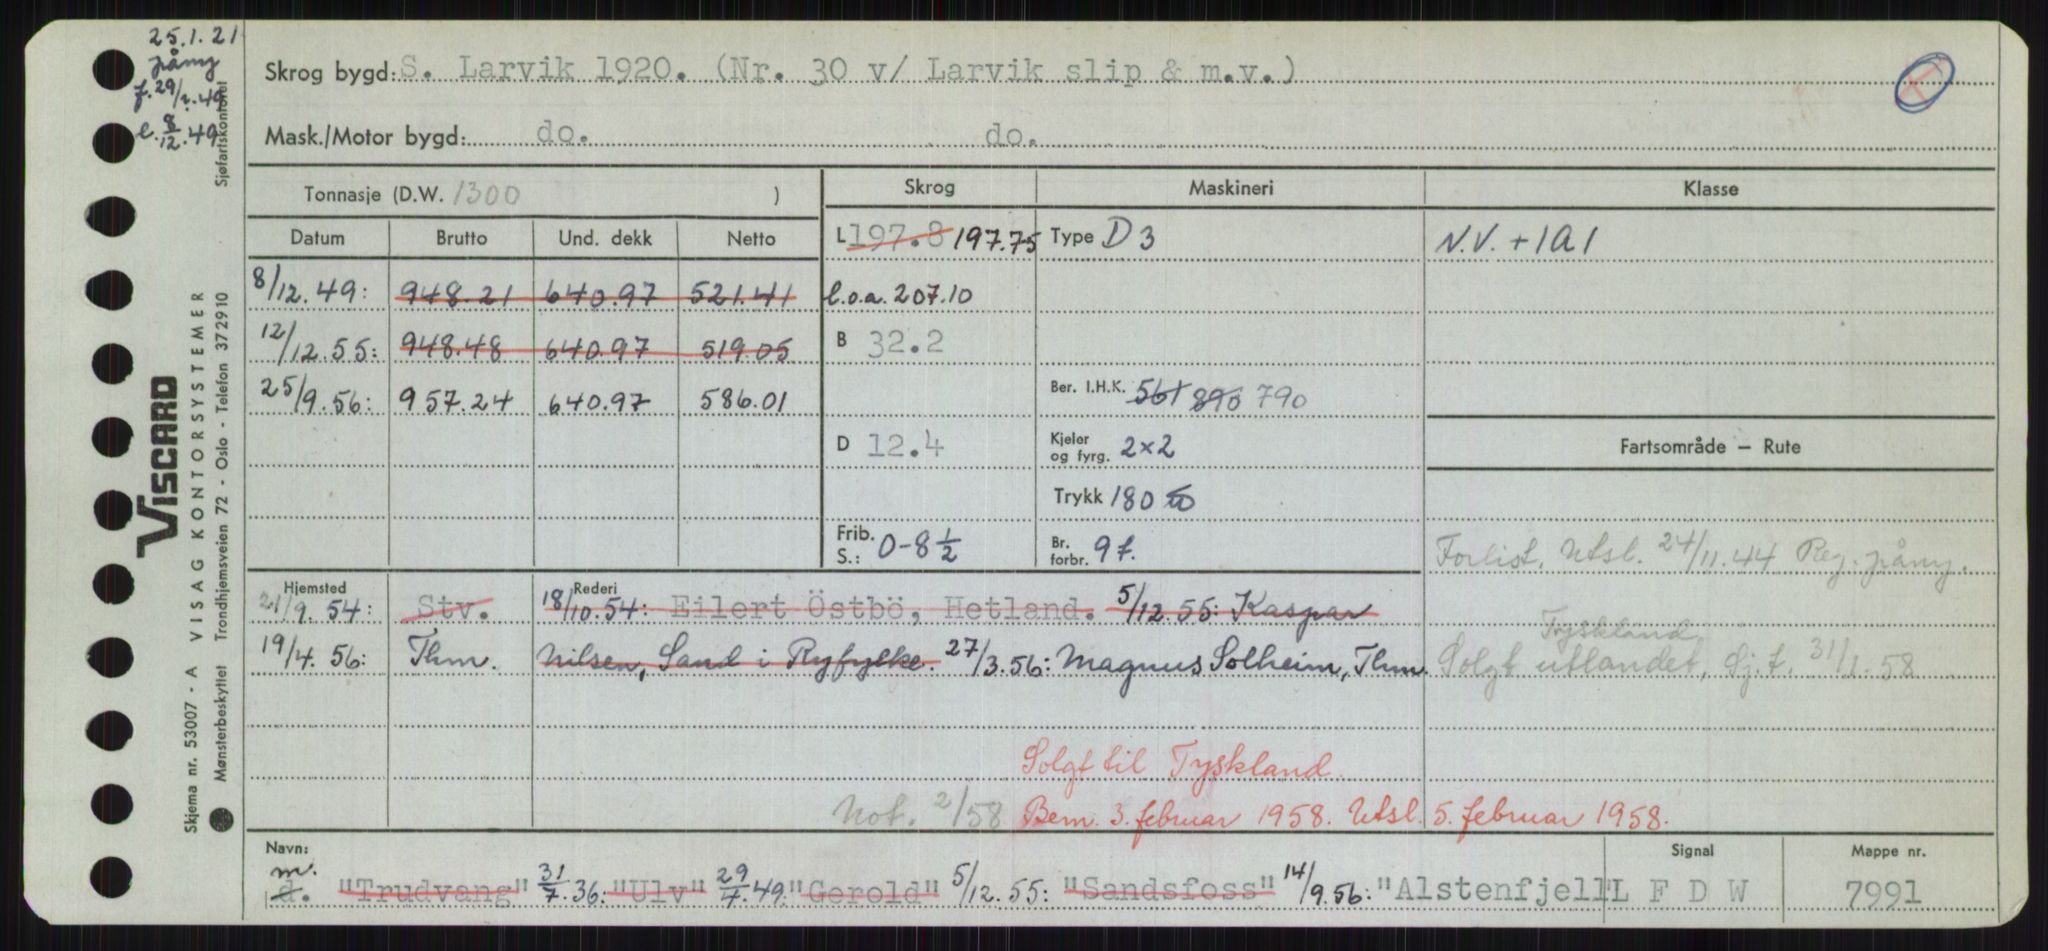 25.1.21
påny
f. 29/7.49
l. 8/12.49
Sjøfartskontoret
VISCARD
Skjema nr. 53007 - A VISAG KONTORSYSTEMER
Mønsterbeskyttet Trondhjemsveien 72 - Oslo - Telefon 372910
Skrog bygd: S. Larvik 1920. (Nr. 30 v/ Larvik slip & m.v.)
Mask./Motor bygd: do. do.
Tonnasje (D.W. 1300 ) Skrog Maskineri Klasse
Datum Brutto Und. dekk Netto L 197.8 197.75 Type D3 N.V. +1A1
8/12.49: 948.21 640.97 521.41 l.o.a. 207.10
12/12.55: 948.48 640.97 519.05 B 32.2
25/9.56: 957.24 640.97 586.01 Ber. I.H.K. 561 890 790
D 12.4 Kjeler og fyrg. 2x2 Fartsområde — Rute
Trykk 180
Frib. S.: 0-8 1/2 Br. forbr. 9 t. Forlist. Utsl. 24/11.44 Reg. påny.
Hjemsted Rederi
21/9.54: Stv. 18/10.54: Eilert Östbö, Hetland. 5/12.55: Kaspar
Tyskland
19/4.56: Thm. Nilsen, Sand i Ryfylke. 27/3.56: Magnus Solheim, Thm. Solgt utlandet, Sj.f. 31/1.58
Solgt til Tyskland
Not. 2/58 Bem. 3. februar 1958. Utsl. 5. februar 1958.
Navn: Signal Mappe nr.
m.
d. "Trudvang" 31/7.36: "Ulv" 29/7.49: "Gerold" 5/12.55: "Sandsfoss" 14/9.56: "Alstenfjell" L F D W 7991